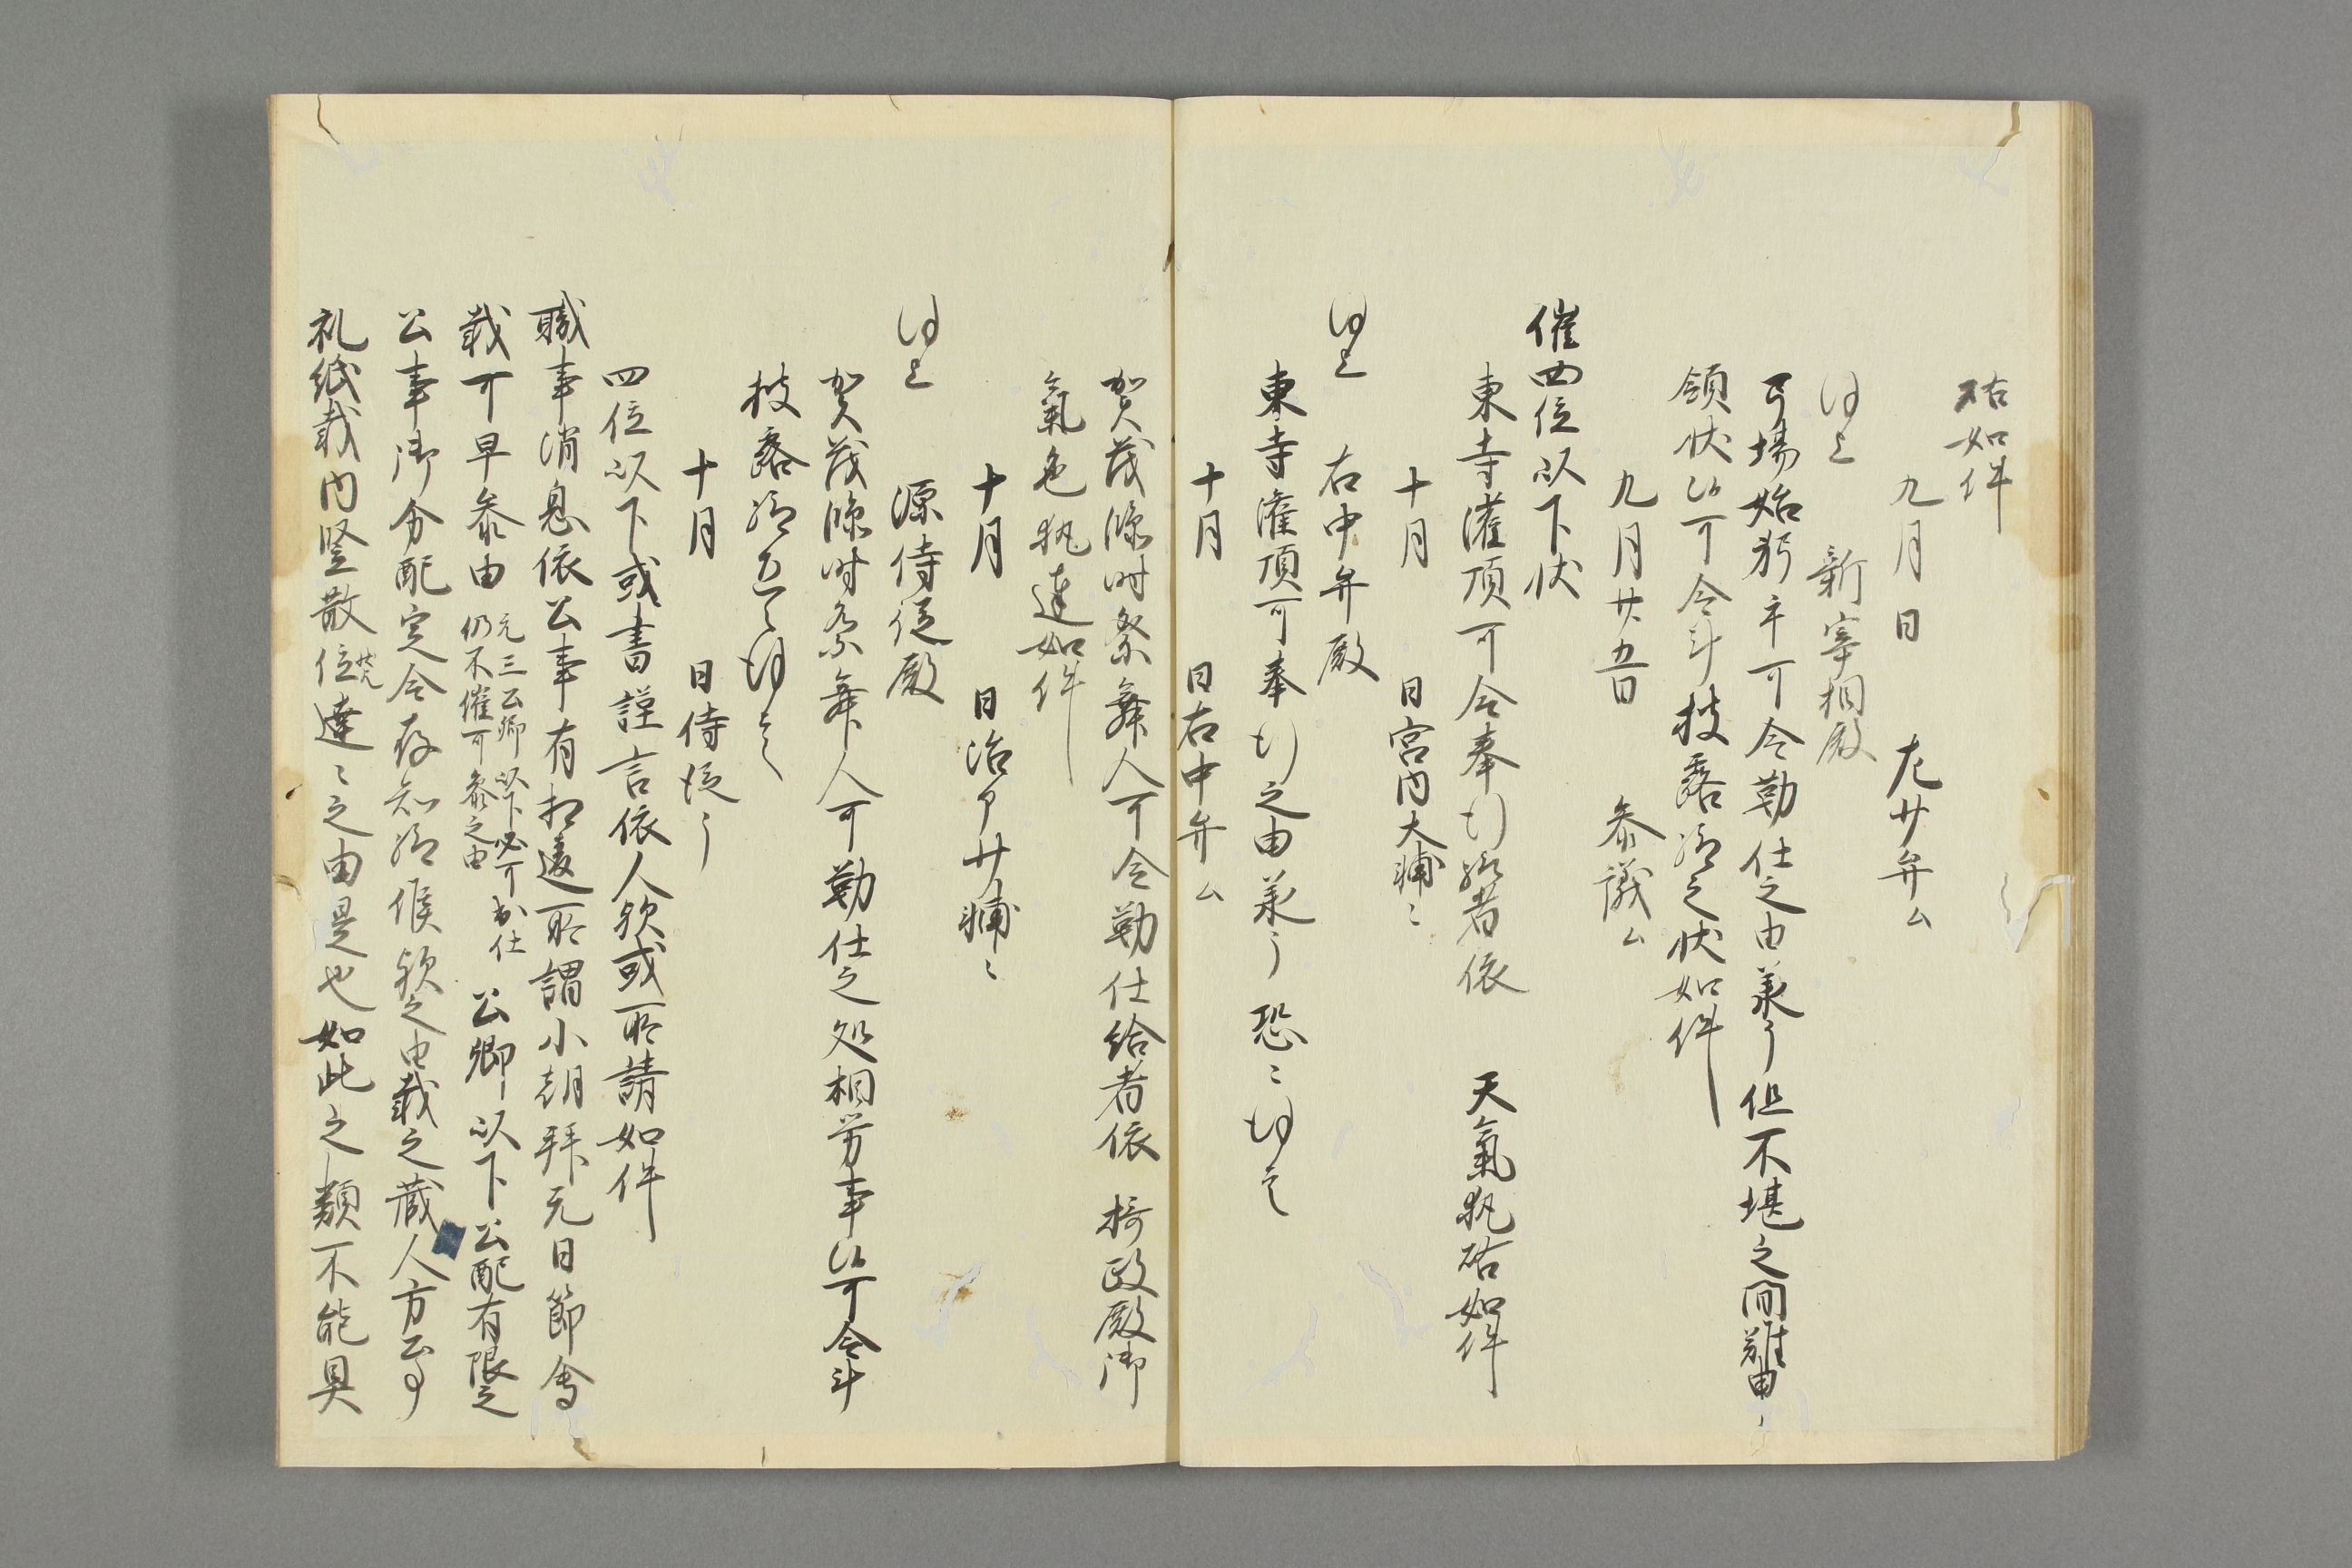 啓如件
九月日　左少弁ム
謹上　新宰相殿
弓場始射手可令勤仕之由承了但不堪之間難
領状候可令計披露給之状如件
九月廿五日　参議ム
催四位以下状
東寺灌頂可令奉行給者依　天氣執啓如件
十月　日宮内大輔〻
謹上　右中弁殿
東寺灌頂可奉行之由承了恐〻謹言
十月　日右中弁ム
賀茂臨時祭舞人可令勤仕給者依　摂政殿御
氣色執達如件
十月　日治ア少輔〻
謹上　源侍従殿
賀茂臨時祭舞人可勤仕之処相労事候可令計
披露給　謹言
十月　日侍従
四位以下或書謹言依人歟或所請如件
職事消息依公事有相違所謂小朝拝元日節會
載可早参由　元三公卿以下必可出仕
仍不催可参之由　公卿以下公配有限之
公事御分配定令存知給候歟之由載之蔵人方公事
礼紙載内竪散位達〻之由是也如此之類不能具